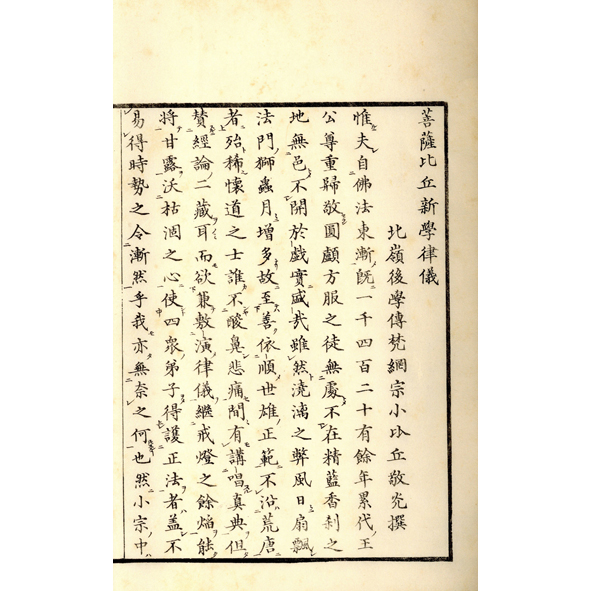 菩薩比丘新學律儀
北嶺後學傳梵網宗小苾丘敬光撰
惟夫自佛法東漸既一千四百二十有餘年累代王
公尊重歸敬圓顱方服之徒無處不在精藍香刹之
地無邑不開於戲實盛哉雖然澆漓之弊風日扇飄
法門獅蟲月增多故至善依順世雄正範不沿荒唐
者殆稀懷道之士誰不酸鼻悲痛間有講唱真典但
賛經論二藏耳而欲兼敷演律儀繼戒燈之餘焰能
將甘露沃枯涸之心使四衆弟子得護正法者蓋不
易得時勢之令漸然乎哉亦無奈之何也然小宗中